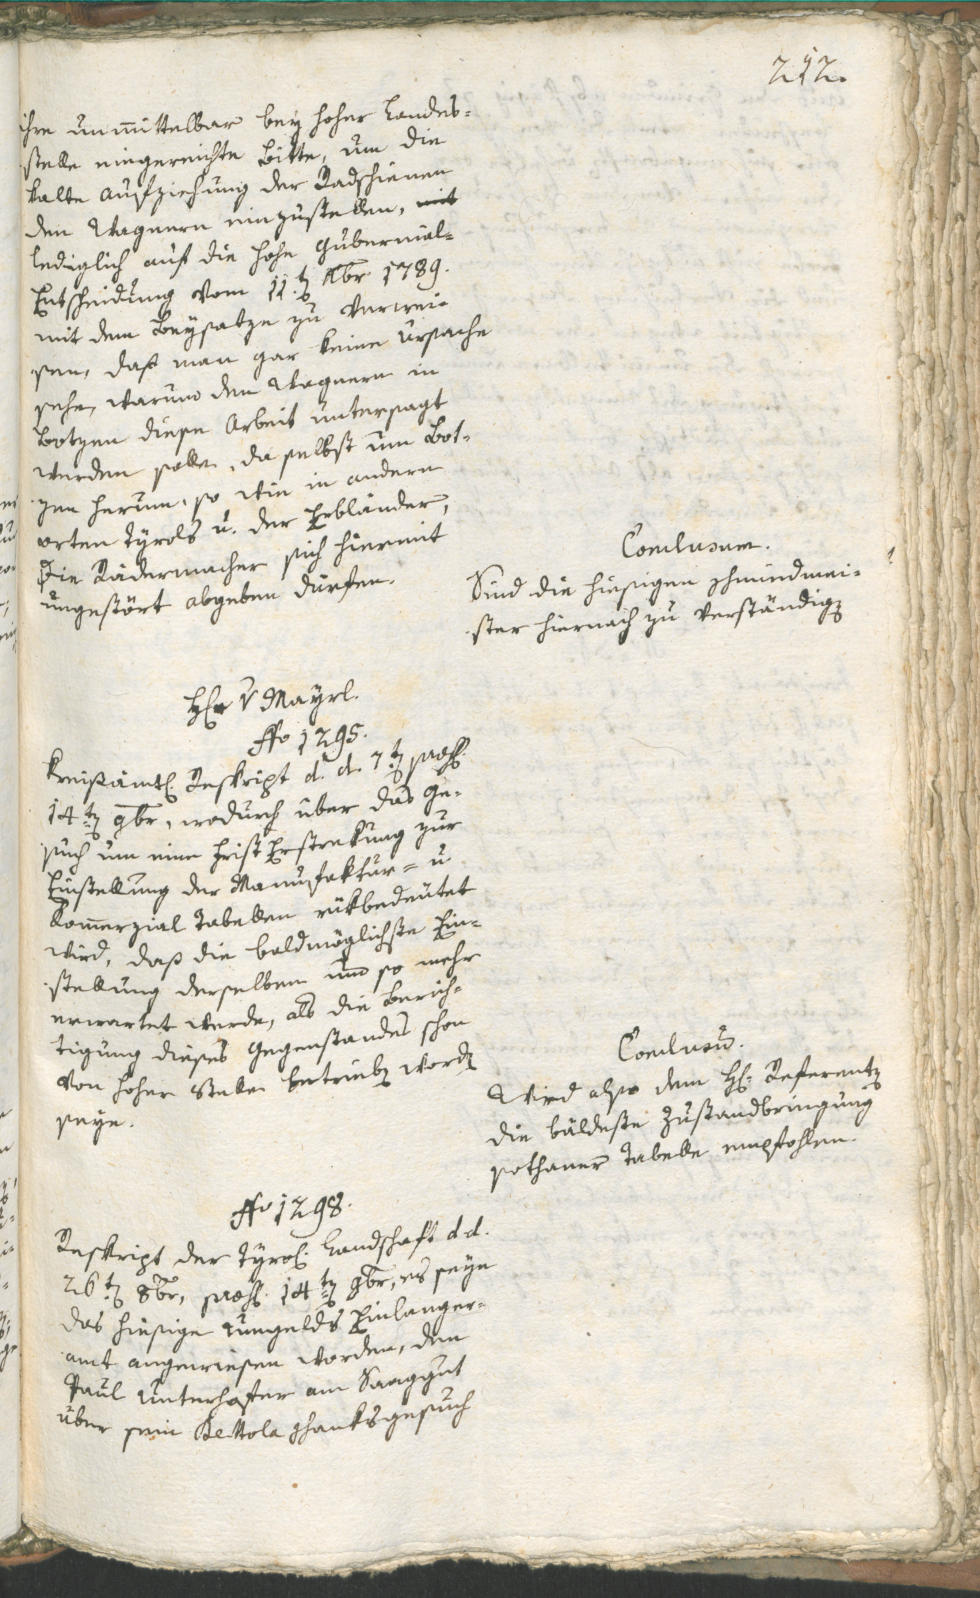 212.
ihre unmittelbar bey hoher Landes-
stelle eingereichte Bitte, um die
kalte Aufziehung der Radschienen
den Wagnern einzustellen, mit
lediglich auf die hohe Gubernial-
Entscheidung vom 11.t 1789.
mit dem Beysatze zu verwei-
sen, daß man gar keine Ursache
sehe, warum den Wagnern in
Botzen diese Arbeit untersagt
werden solle, da selbst um Bot-
zen herum, so wie in andern
orten Tyrols u. der Erbländer,
die Rädermacher sich hiermit
ungestört abgeben dürfen.
Conclusum.
Sind die hiesigen Schmidmei-
ster hiernach zu verständigen
H. v Mayrl.
No 1295.
Kreisämtl. Reskript d. d. 7t praes.
14t 9br, wodurch über das Ge-
such um eine Frist Erstrekung zur
Einstellung der Manufaktur- u
Kommerzial Tabellen rükbedeutet
wird, daß die baldmöglichste Ein-
stellung derselben um so mehr
erwartet werde, als die Berich-
tigung dieses Gegenstandes schon
von hoher Stelle betrieben worden
seye.
Conclusum.
Wird also dem H. Referenten
die bäldeste Zustandbringung
sothaner Tabelle empfohlen.
No 1298.
Reskript der Tyrol. Landschaft d d.
26t 8br, praes. 14t 9br, es seye
das hiesige Umgelds Einlanger-
amt angewiesen worden, dem
Paul Unterhofer am Saaggut
über sein Bettola Schanksgesuch